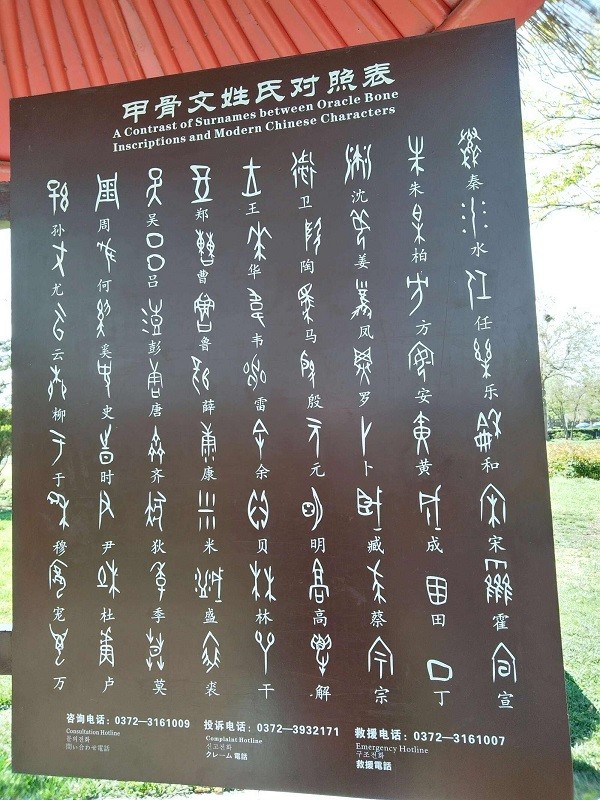 甲骨文姓氏对照表
A Contrast of Surnames between Oracle Bone
Inscriptions and Modern Chinese Characters
孙 周 吴 郑 王 卫 沈 朱 秦
尤 何 吕 曹 华 陶 姜 柏 水
云 奚 彭 鲁 韦 马 凤 方 任
柳 史 唐 薛 雷 殷 罗 安 乐
于 时 齐 康 余 元 卜 黄 和
穆 尹 狄 米 贝 明 臧 成 宋
宠 杜 季 盛 林 高 蔡 田 霍
万 卢 莫 裘 干 解 宗 丁 宣
咨询电话：0372—3161009
Consultation Hotline
문의전화
問い合わせ電話
投诉电话：0372—3932171
Complaint Hotline
신고전화
クレーム電話
救援电话：0372—3161007
Emergency Hotline
구조전화
救援電話